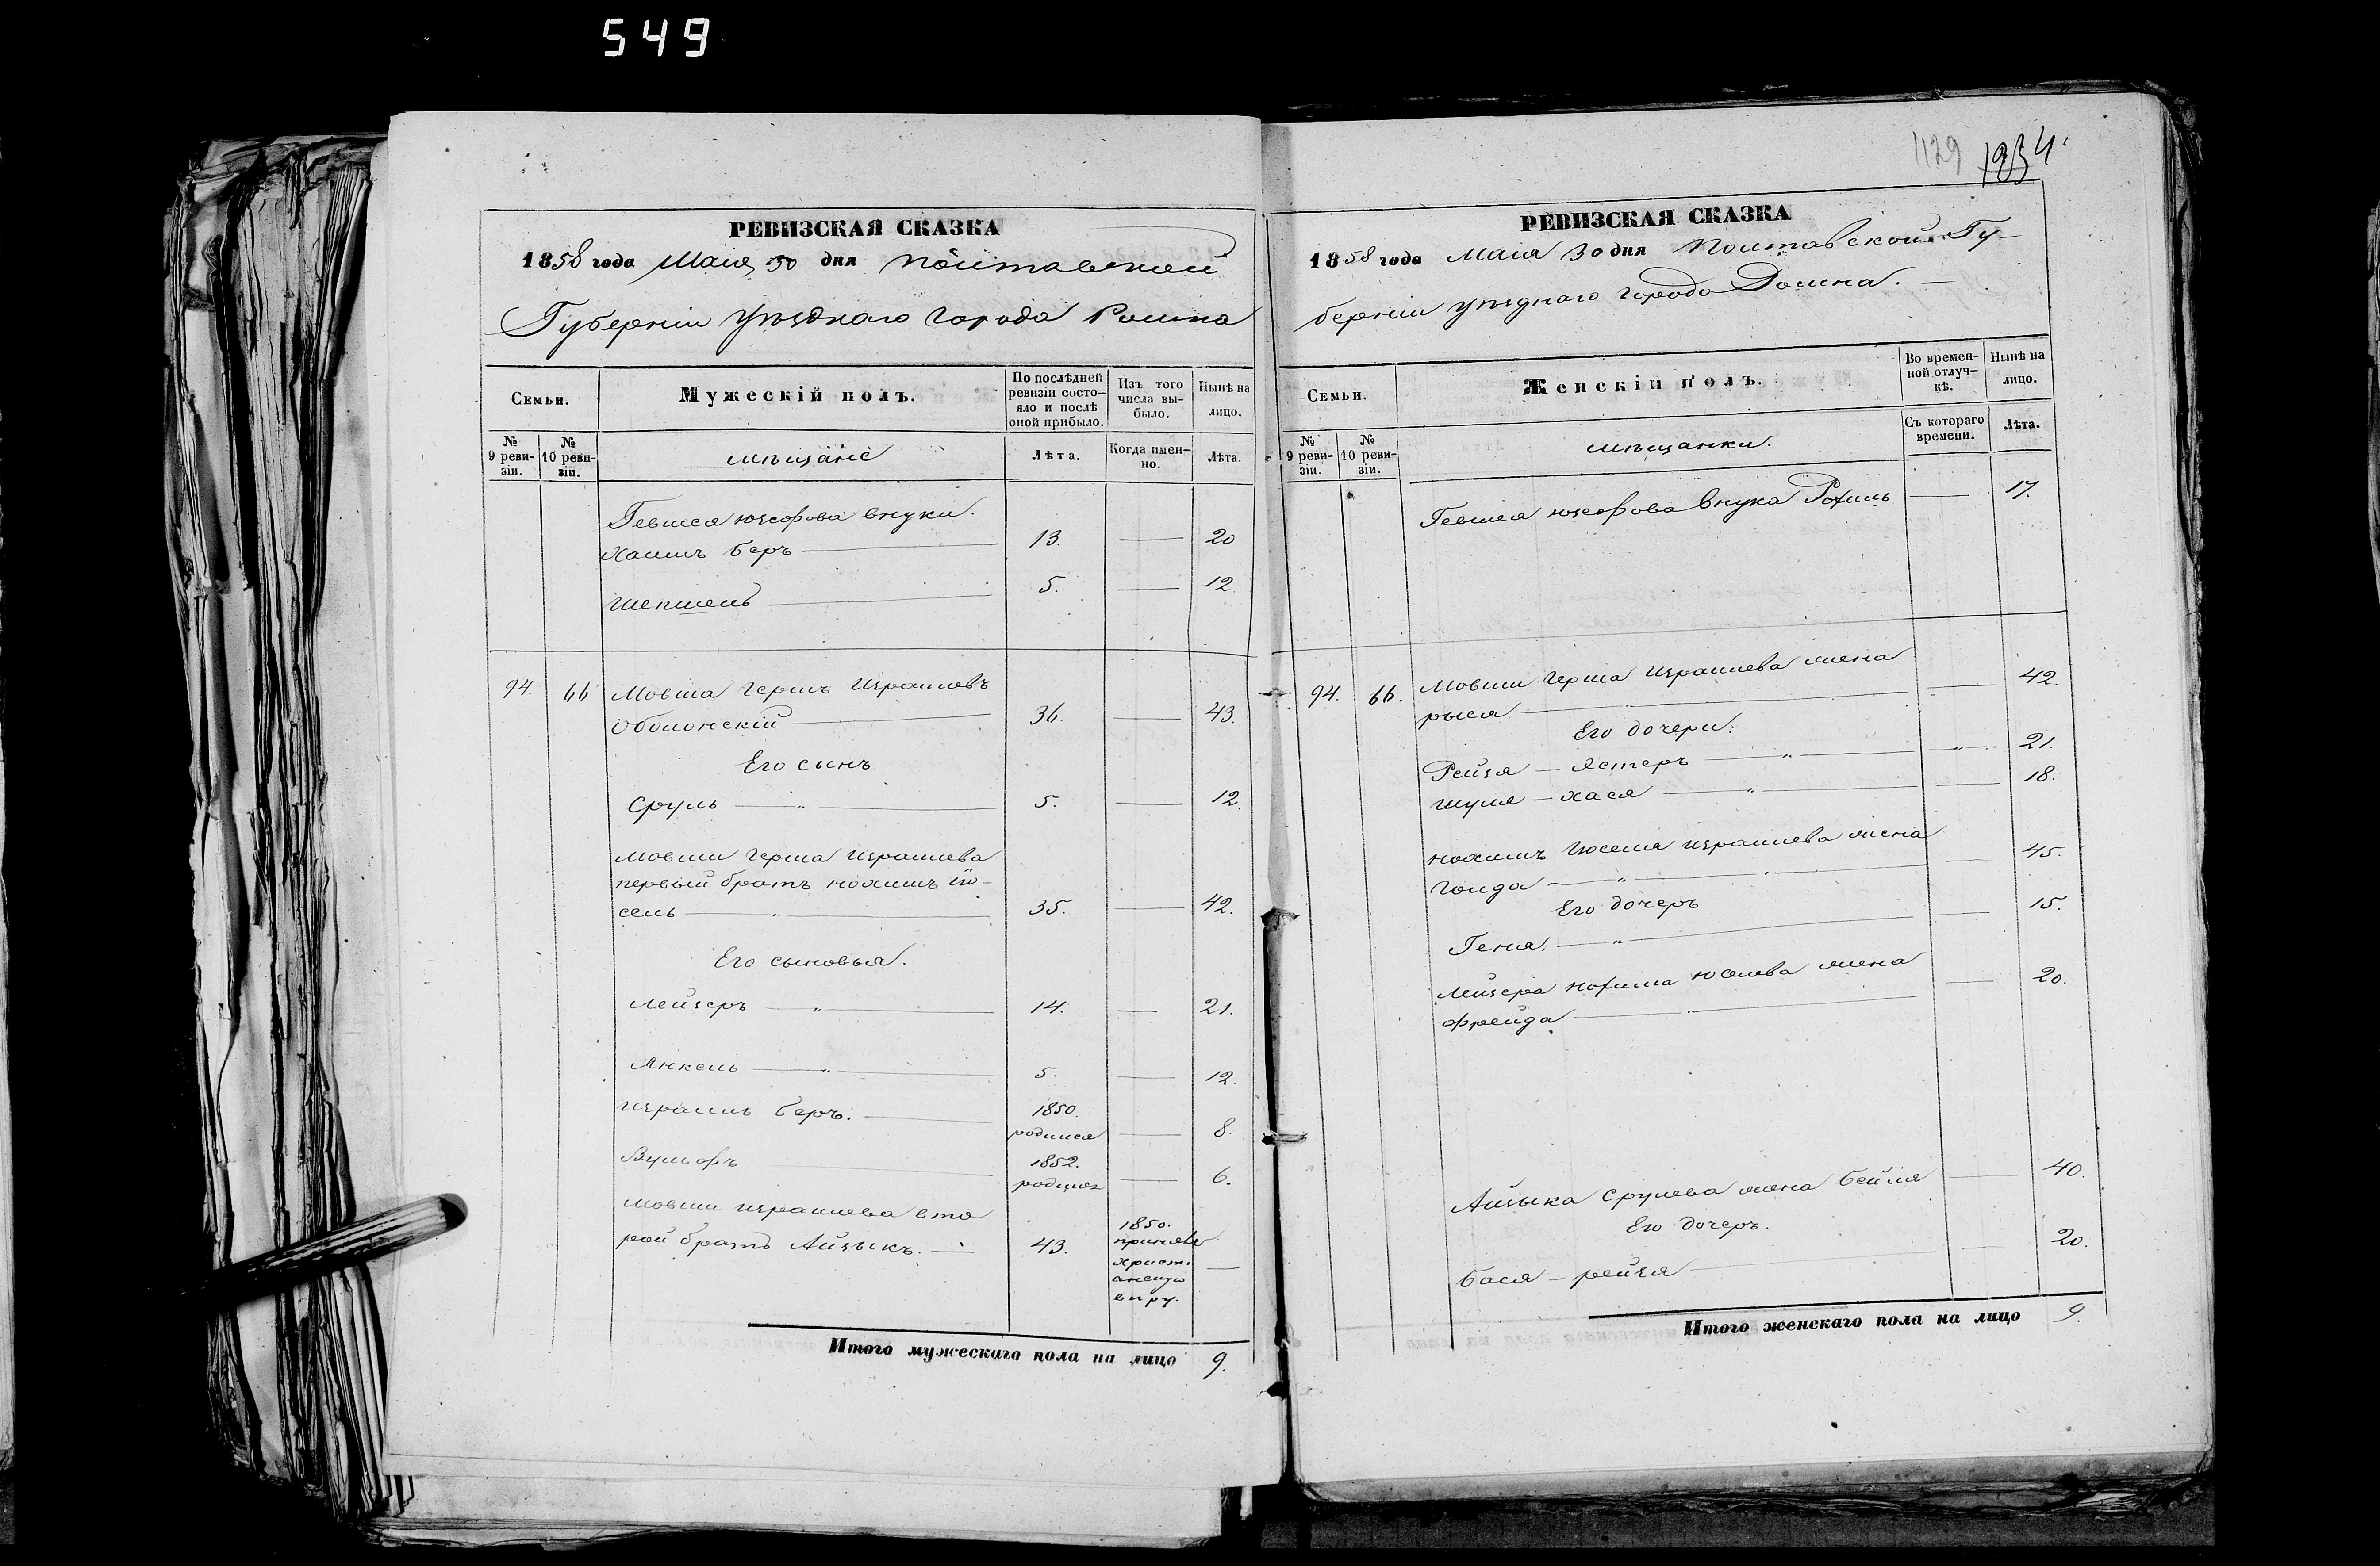 549
РЕВИЗСКАЯ СКАЗКА
1858 года Маія 30 дня Полтавской
Губерніи уѣзднаго города Ромна
Семьи.
Мужескій полъ.
По послѣдней ревизіи состояло и послѣ оной прибыло.
Изъ того числа выбыло.
Нынѣ на лицо.
№ 9 ревизіи.
№ 10 ревизіи.
мѣщане
Лѣта.
Когда именно.
Лѣта.
Гевшея Юзефова внуки.
Хаимъ Беръ — 13. — 20
Шепшель — 5. — 12.
94. 66 Мовша Гершъ Израилевъ
Оболонскій — 36. — 43.
Его сынъ
Сруль — " — 5. — 12.
Мовши Герша Израилева
первый братъ Нохимъ Іо-
сель — " — 35. — 42.
Его сыновья.
Лейзеръ — " — 14. — 21.
Янкель — " — 5. — 12.
Израиль Беръ. — 1850. родился — 8.
Вульофъ 1852. родился — 6.
Мовши Израилева вто
рой братъ Айзыкъ. — 43. 1850. принялъ Христіанскую вѣру. —
Итого мужескаго пола на лицо 9.
1129 1934.
РЕВИЗСКАЯ СКАЗКА
1858 года Маія 30 дня Полтавской Гу-
берніи уѣзднаго города Ромна. —
Семьи.
Женскій полъ.
Во временной отлучкѣ.
Нынѣ на лицо.
№ 9 ревизіи.
№ 10 ревизіи.
мѣщанки.
Съ котораго времени.
Лѣта.
Гевшея Юзефова внука Рохиль — 17.
94. 66. Мовши Герша Израилева жена
Рыся — " — 42.
Его дочери:
Рейзя — Эстеръ — " — 21.
Шуля — Хася — " — 18.
Нохимъ Іюселя Израилева жена
Голда — " — " — 45.
Его дочеръ
Геня. — " — 15.
Лейзера Нохима Юселева жена
Фрейда — " — 20.
Айзыка Срулева жена Бейля — 40.
Его дочеръ.
Бася — Рейзя — 20.
Итого женскаго пола на лицо 9.